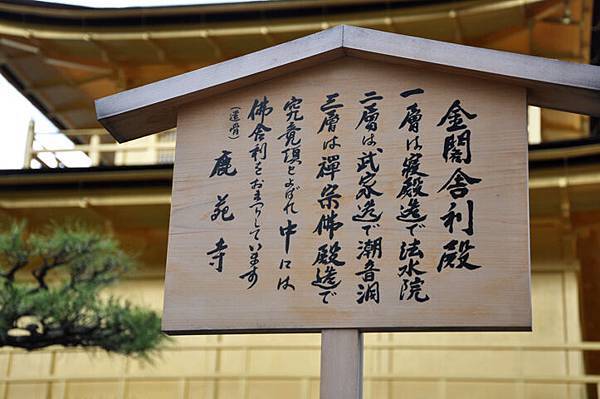 金閣舎利殿
一層は寝殿造で法水院
二層は武家造で潮音洞
三層は禅宗佛殿造で
究竟頂とよばれ中には
佛舎利をおまつりしています
(遺骨)
鹿苑寺